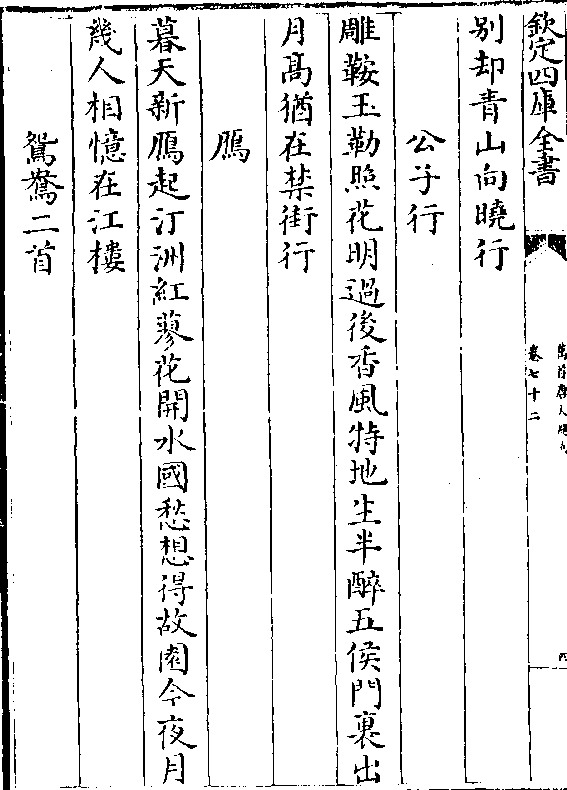 欽定四庫全書
萬首唐人絶句
卷七十二
四
別却青山向曉行
公子行
雕鞍玉勒照花明過後香風特地生半醉五侯門裏出
月髙猶在禁街行
鴈
暮天新鴈起汀洲紅蓼花開水國愁想得故園今夜月
幾人相憶在江樓
鴛鴦二首